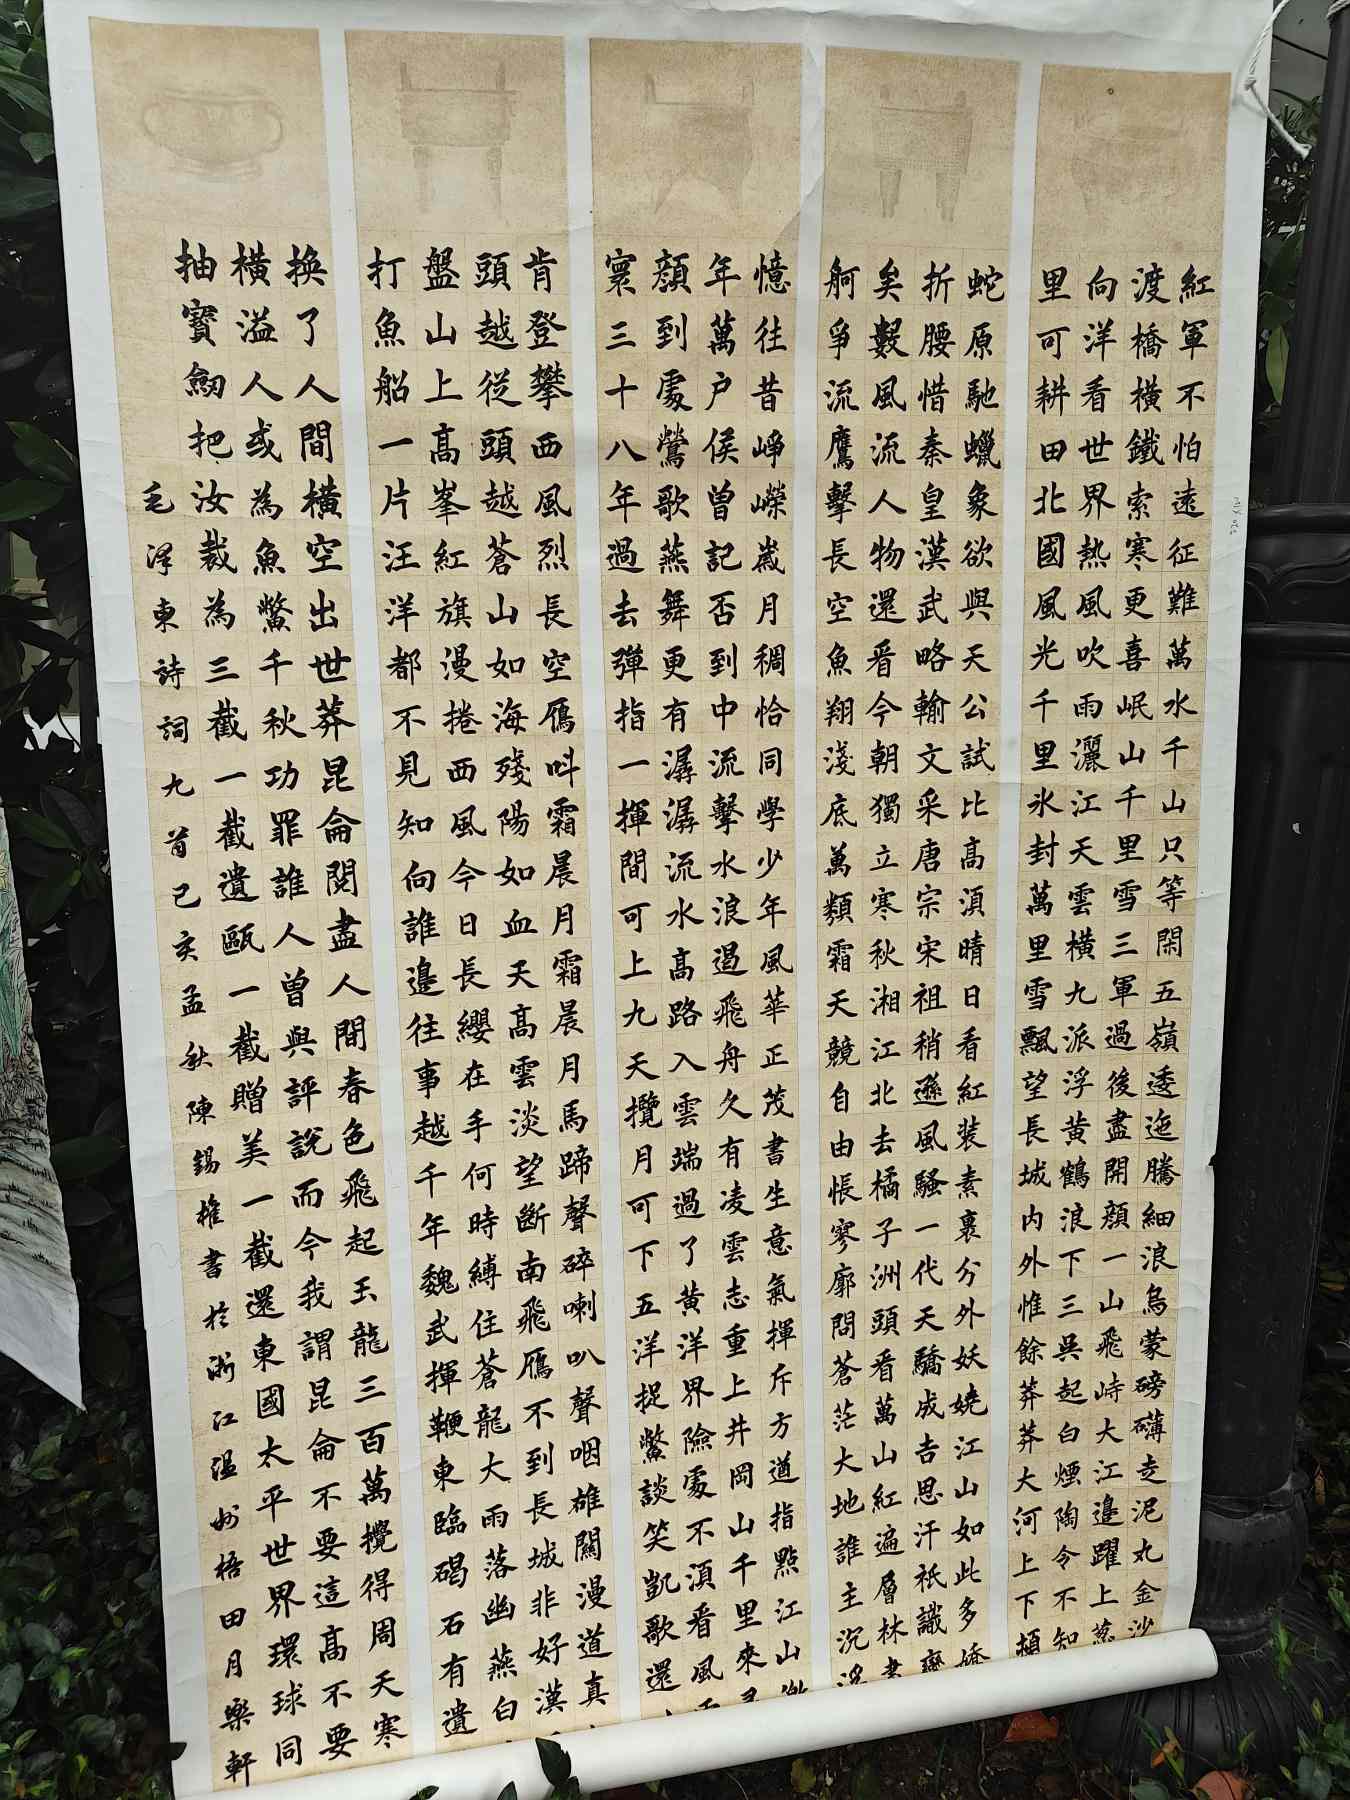 紅軍不怕遠征難萬水千山只等閑五嶺逶迤騰細浪烏蒙磅礴走泥丸金沙
渡橋橫鐵索寒更喜岷山千里雪三軍過後盡開顏一山飛峙大江邊躍上葱
向洋看世界熱風吹雨灑江天雲橫九派浮黃鶴浪下三吳起白煙陶令不知
里可耕田北國風光千里氷封萬里雪飄望長城內外惟餘莽莽大河上下頓
蛇原馳蠟象欲與天公試比高湏晴日看紅裝素裹分外妖嬈江山如此多嬌
折腰惜秦皇漢武略輸文采唐宗宋祖稍遜風騷一代天驕成吉思汗衹識彎
矣數風流人物還看今朝獨立寒秋湘江北去橘子洲頭看萬山紅遍層林
舸爭流鷹擊長空魚翔淺底萬類霜天競自由悵寥廓問蒼茫大地誰主沉浮
憶往昔崢嶸嵗月稠恰同學少年風華正茂書生意氣揮斥方遒指點江山激
年萬户侯曾記否到中流擊水浪遏飛舟久有凌雲志重上井岡山千里來
顏到處鶯歌燕舞更有潺潺流水高路入雲端過了黃洋界險處不湏看風
寰三十八年過去彈指一揮間可上九天攬月可下五洋捉鱉談笑凱歌還
肯登攀西風烈長空雁叫霜晨月霜晨月馬蹄聲碎喇叭聲咽雄關漫道真
頭越從頭越蒼山如海殘陽如血天高雲淡望斷南飛雁不到長城非好漢
盤山上高峯紅旗漫捲西風今日長纓在手何時縛住蒼龍大雨落幽燕白
打魚船一片汪洋都不見知向誰邊往事越千年魏武揮鞭東臨碣石有遺
換了人間橫空出世莽昆侖閱盡人間春色飛起玉龍三百萬攪得周天寒
橫溢人或為魚鱉千秋功罪誰人曾與評說而今我謂昆侖不要這高不要
抽寶劒把汝裁為三截一截遺甌一截贈美一截還東國太平世界環球同
毛澤東詩詞九首己亥孟秋陳錫権書於浙江溫州梧田月樂軒